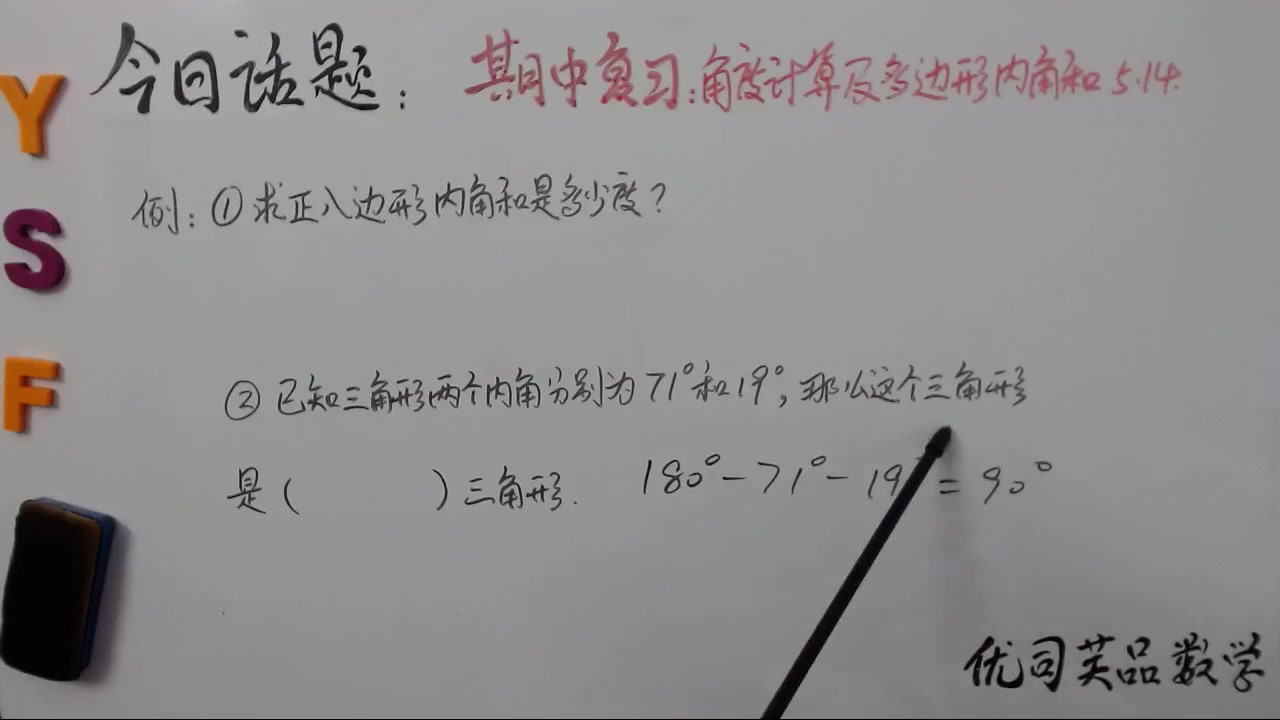 今日话题：期中复习：角度计算及多边形内角和 5.14.
Y
S
F
例：①求正八边形内角和是多少度？
②已知三角形两个内角分别为71°和19°，那么这个三角形
是（ ）三角形. 180°-71°-19 = 90°
优司芙品数学